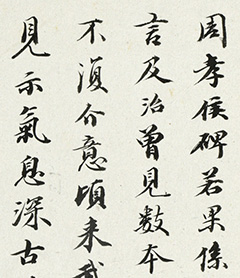 周孝侯碑若果係
言及治曾見數本
不須介意頃来
見示氣息深古